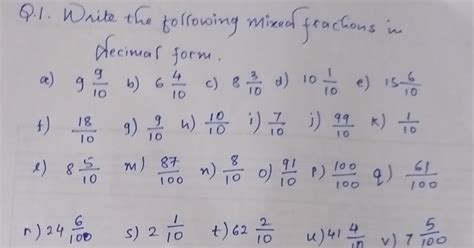 Q.1. Write the following mixed fractions in
decimal form.
a) 9 9/10 b) 6 4/10 c) 8 3/10 d) 10 1/10 e) 15 6/10
f) 18/10 g) 9/10 h) 10/10 i) 7/10 j) 99/10 k) 1/10
l) 8 5/10 m) 87/100 n) 8/10 o) 91/10 p) 100/100 q) 61/100
r) 24 6/100 s) 2 1/10 t) 62 2/10 u) 41 4/10 v) 7 5/100